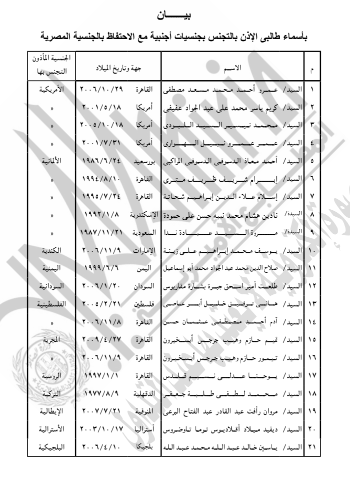 بيـــان
بأسماء طالبى الإذن بالتجنس بجنسيات أجنبية مع الاحتفاظ بالجنسية المصرية
م الاســـم جهة وتاريخ الميلاد الجنسية المأذون التجنس بها
١ السيد/ عمرو أحمد محمد مسعد مصطفى القاهرة ٢٠٠٦/١٠/٢٩ الأمريكية
٢ السيد/ كريم ياسر محمد على عبد الجواد عفيفى أمريكا ٢٠٠١/٥/١٨ »
٣ السيد/ محمد السيد أمريكا ٢٠٠٥/١٠/١٨ »
٤ السيد/ عمر عمرو نبيل الهوارى أمريكا ٢٠٠١/٧/٣١ »
٥ السيد/ أحمد معاذ الدسوقى الدسوقى بورسعيد ١٩٨٦/٦/٢٤ الألمانية
٦ السيد/ إبرام شريف ظريف القاهرة ١٩٩٤/٨/١٠ »
٧ السيد/ إسلام علاء الدين إبراهيم شحاتة القاهرة ١٩٩٥/٧/٢٤ »
٨ السيدة/ نادين هشام محمد نبيه حسن على حمودة الإسكندرية ١٩٩٢/١/٨ »
٩ السيدة/ مروة السيد ندا السعودية ١٩٨٧/١١/٢١ »
١٠ السيد/ يوسف محمد إبراهيم على زينة الإمارات ٢٠٠٦/١١/٩ الكندية
١١ السيد/ صلاح الدين محمد عبد الجواد محمد أبو إسماعيل اليمن ١٩٩٩/٦/٦ اليمنية
١٢ السيد/ طلعت أمير اسحق جبرة بشارة مقاريوس السودان ٢٠٠٦/١/٢٠ السودانية
١٣ السيد/ هانى خليل أبو عاصى فلسطين ٢٠٠٥/٢/٢١ الفلسطينية
١٤ السيد/ آدم أحمد مصطفى عثمان حسن القاهرة ٢٠٠٦/١١/٨ »
١٥ السيد/ تيم حازم وهيب جرجس أبسخيرون القاهرة ٢٠٠٩/٤/٢٧ المجرية
١٦ السيد/ تيمور حازم وهيب جرجس أبسخيرون القاهرة ٢٠٠٦/١١/٩ »
١٧ السيد/ يوحنا عدلى قلدس القاهرة ١٩٩٧/١/١ الروسية
١٨ السيد/ محمد لطفى طلبة جعفر الدقهلية ١٩٧٧/٨/٩ التركية
١٩ السيد/ مروان رأفت عبد القادر عبد الفتاح البرعى المنوفية ٢٠٠٧/٧/٢١ الإيطالية
٢٠ السيد/ ديفيد ميلاد أقلاديوس توما تاوضروس أستراليا ٢٠٠٣/١٠/١٧ الأسترالية
٢١ السيد/ ياسين خالد عبد الله محمد عبد الله بلجيكا ٢٠٠٦/٤/١٠ البلجيكية